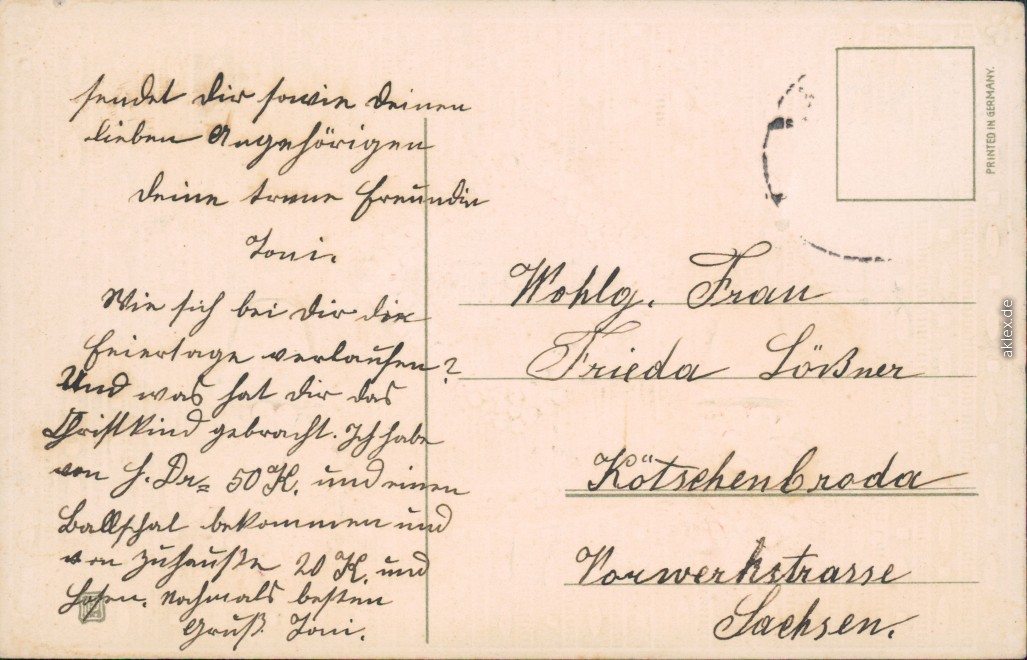 sendet dir sowie deinen
lieben Angehörigen
deine treue Freundin
Toni.
Wie sich bei dir die
Feiertage verlaufen?
Und was hat dir das
Christkind gebracht. Ich habe
von H. Dr= 50 K. und einen
Ballschal bekommen und
von zuhauße 20 K. und
nochmals besten
Gruß Toni.
PRINTED IN GERMANY.
Wohlg. Frau
Frieda Lößner
Kötschenbroda
Vorwerkstrasse
Sachsen.
aklex.de